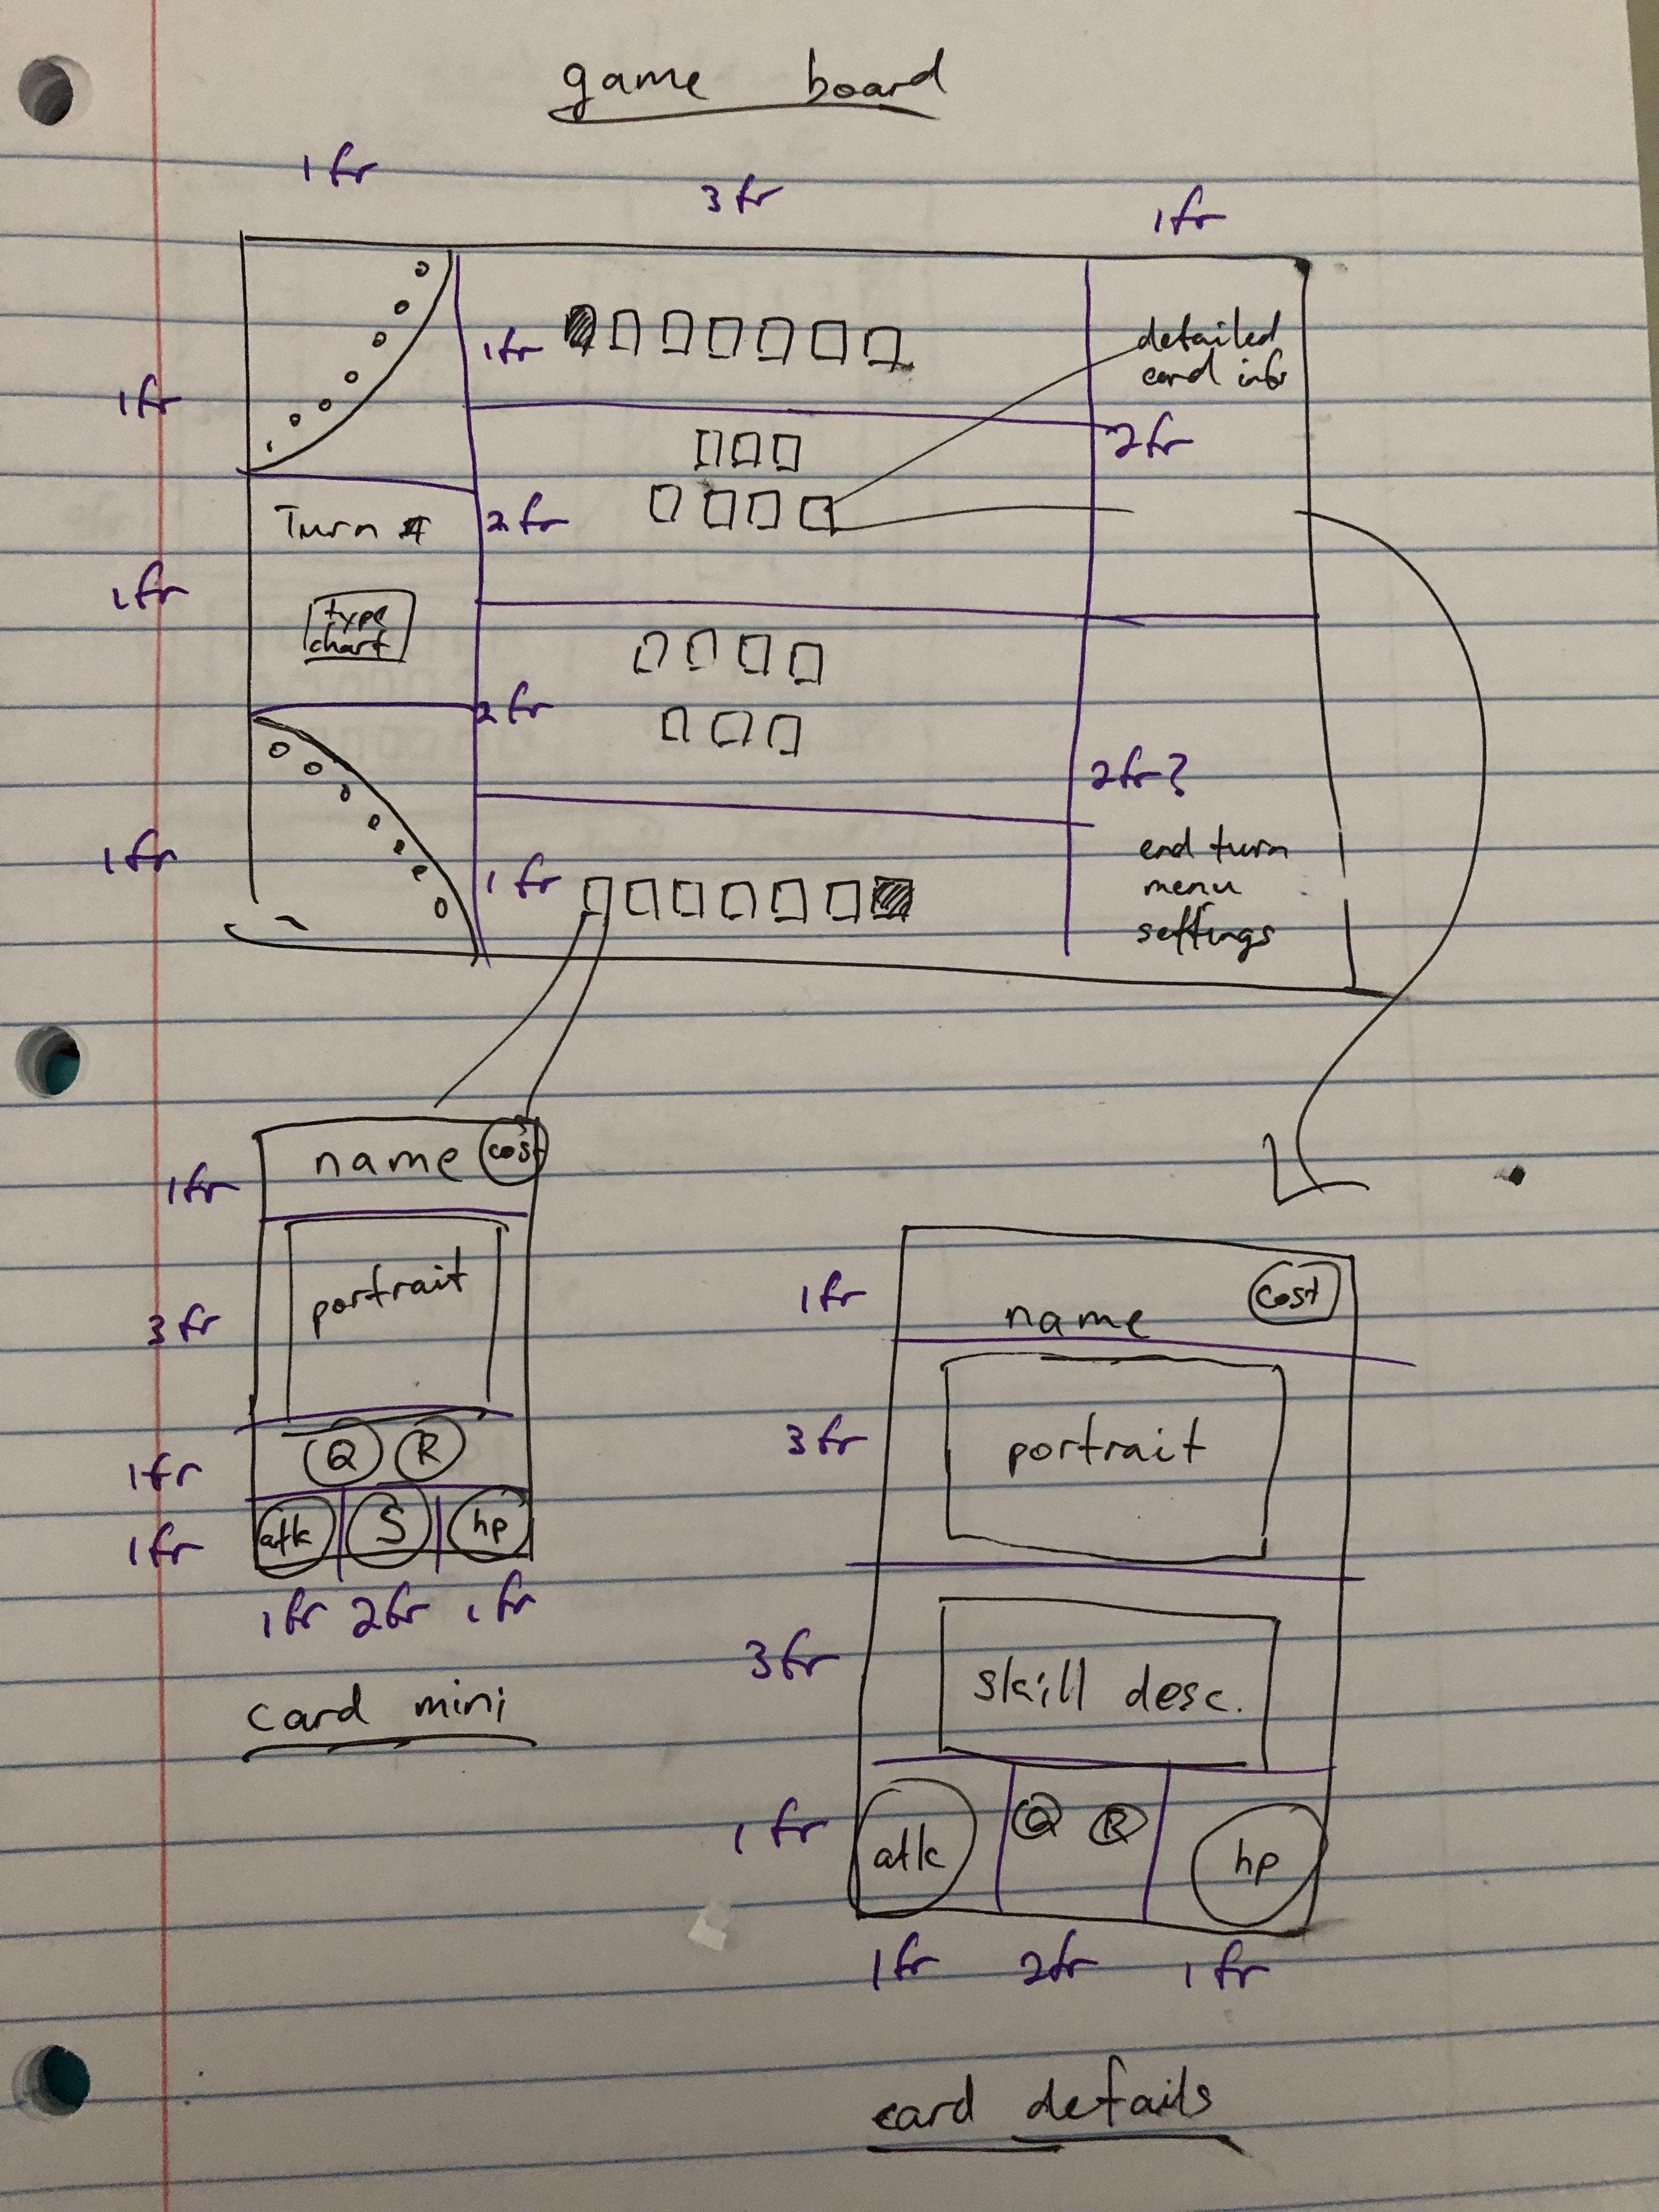 game board
1fr 3fr 1fr
1fr
1fr
detailed
card info
2fr
Turn #
2fr
1fr
type
chart
2fr
2fr?
1fr
1fr
end turn
menu
settings
name cost
1fr
portrait
3fr
Q R
1fr
atk S hp
1fr
1fr 2fr 1fr
card mini
1fr
name cost
3fr
portrait
3fr
skill desc.
1fr
atk Q R hp
1fr 2fr 1fr
card details